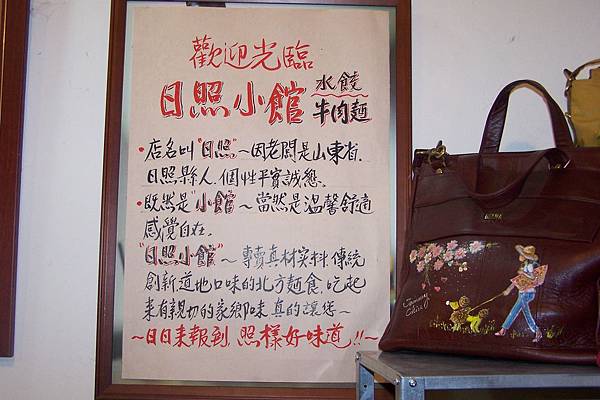 歡迎光臨
日照小館 水餃 牛肉麵
•店名叫"日照"～因老闆是山東省.
日照縣人.個性平實誠懇.
•既然是"小館"～當然是溫馨舒適
感覺自在.
"日照小館"～專賣真材实料.傳統
創新道地口味的北方麵食.吃起
來有親切的家鄉味.真的讓您～
～日日來報到.照樣好味道!!～